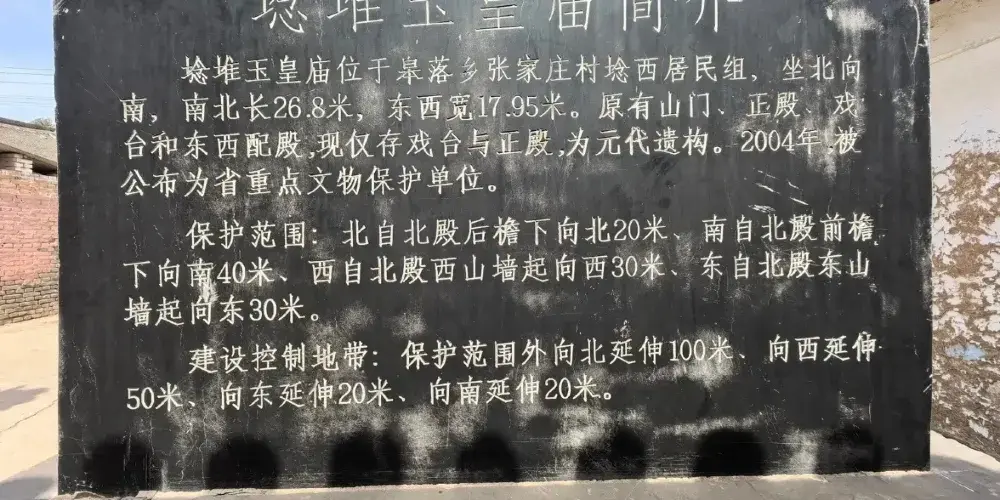 埝堆玉皇庙简介
埝堆玉皇庙位于皋落乡张家庄村埝西居民组，坐北向
南，南北长26.8米，东西宽17.95米。原有山门、正殿、戏
台和东西配殿,现仅存戏台与正殿,为元代遗构。2004年,被
公布为省重点文物保护单位。
保护范围：北自北殿后檐下向北20米、南自北殿前檐
下向南40米、西自北殿西山墙起向西30米、东自北殿东山
墙起向东30米。
建设控制地带：保护范围外向北延伸100米、向西延伸
50米、向东延伸20米、向南延伸20米。